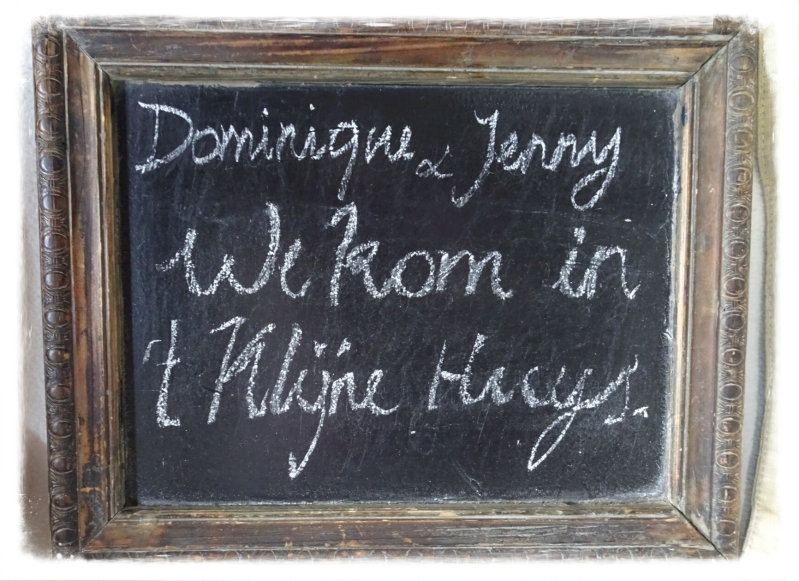 Dominique & Jenny
Wekom in
't Klijne Huys.